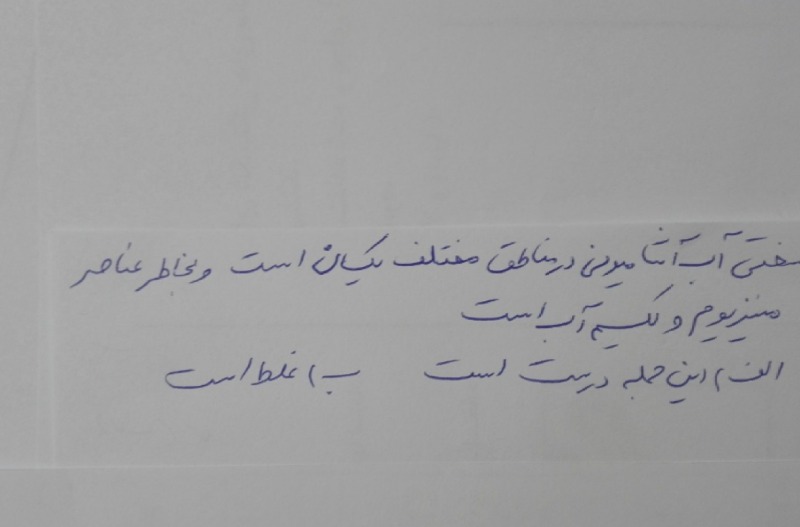 سختی آب آشامیدنی در مناطق مختلف یکسان است و بخاطر عناصر
منیزیوم و کلسیم آب است
الف) این جمله درست است ب) غلط است